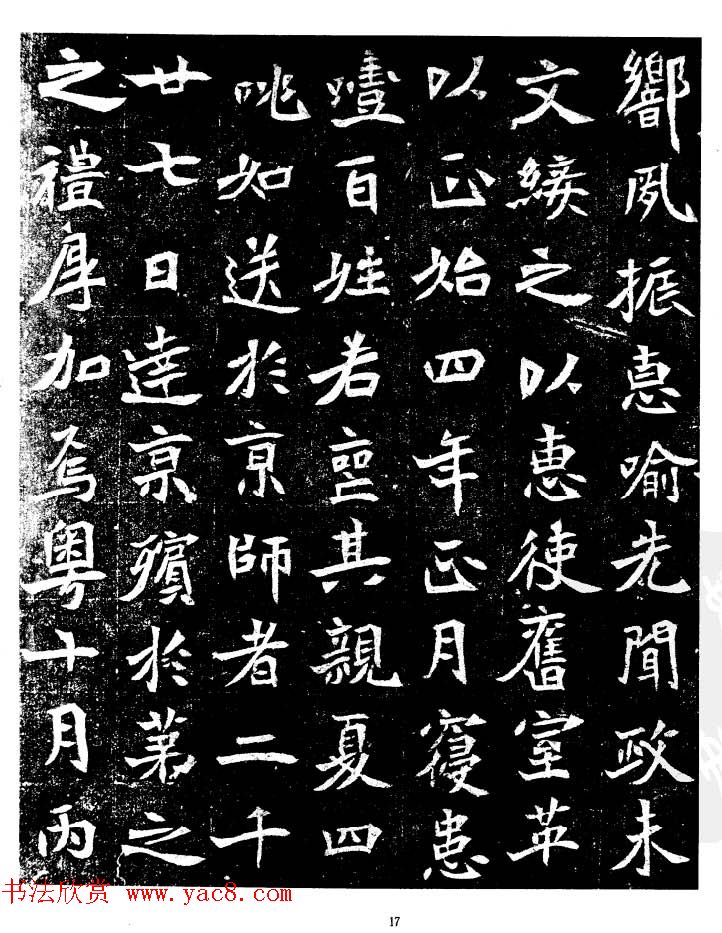 響夙振惠喻先聞政未
文綏之以惠使舊室革
以正始四年正月寢患
噎百姓若喪其親夏四
咷如送於京師者二千
廿七日達京殯於第之
之禮厚加焉粵十月丙
书法欣赏 www.yac8.com
17